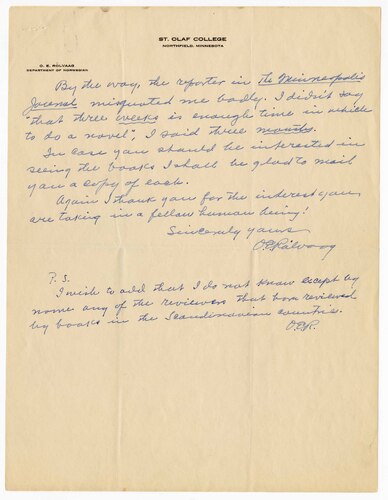 ST. OLAF COLLEGE
NORTHFIELD, MINNESOTA
O. E. RÖLVAAG
DEPARTMENT OF NORWEGIAN
By the way, the reporter in The Minneapolis
Journal misquoted me badly. I didn't say
"that three weeks is enough time in which
to do a novel", I said three months.
In case you should be interested in
seeing the books I shall be glad to mail
you a copy of each.
Again I thank you for the interest you
are taking in a fellow human being!
Sincerely yours
O.E. Rölvaag
P.S.
I wish to add that I do not know except by
name any of the reviewers that have reviewed
my books in the Scandinavian countries.
O.E.R.